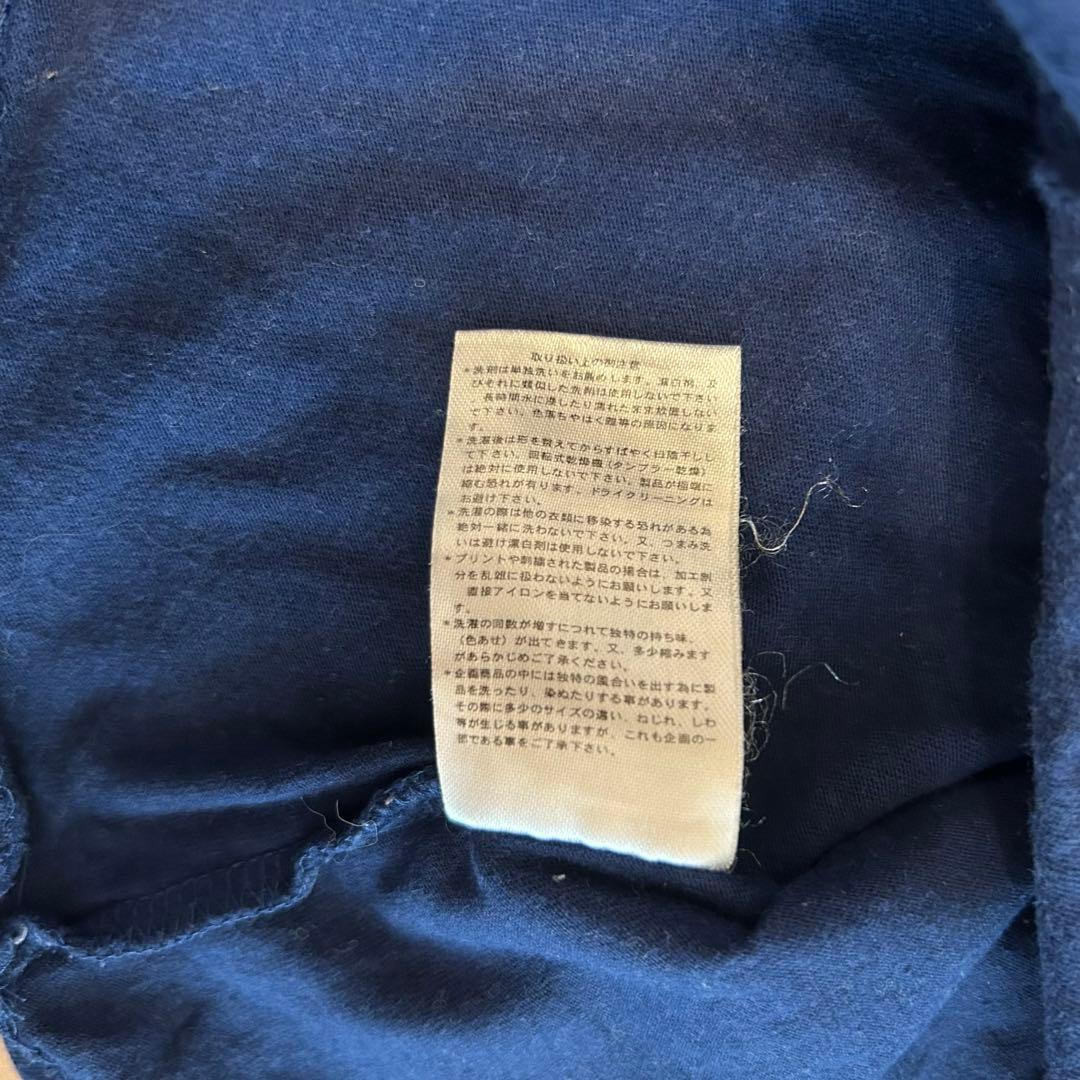 取り扱い上の御注意
*洗剤は単独洗いをお薦めします。漂白剤、及
びそれに類似した洗剤は使用しないで下さい
長時間水に浸したり濡れたまま放置しない
で下さい。色落ちやほく離等の原因になりま
す。
*洗濯後は形を整えてからすばやく日陰干しし
て下さい。回転式乾燥機(タンブラー乾燥)
は絶対に使用しないで下さい。製品が極端に
縮む恐れが有ります。ドライクリーニングは
お避け下さい。
*洗濯の際は他の衣類に移染する恐れがある為
絶対一緒に洗わないで下さい。又、つまみ洗
いは避け漂白剤は使用しないで下さい。
*プリントや刺繍された製品の場合は、加工部
分を乱雑に扱わないようにお願いします。又
直接アイロンを当てないようにお願いしま
す。
*洗濯の回数が増すにつれて独特の持ち味、
(色あせ)が出てきます。又、多少縮みます
があらかじめご了承ください。
*企画商品の中には独特の風合いを出す為に製
品を洗ったり、染ぬたりする事があります。
その際に多少のサイズの違い、ねじれ、しわ
等が生じる事がありますが、これも企画の一
部である事をご了承下さい。